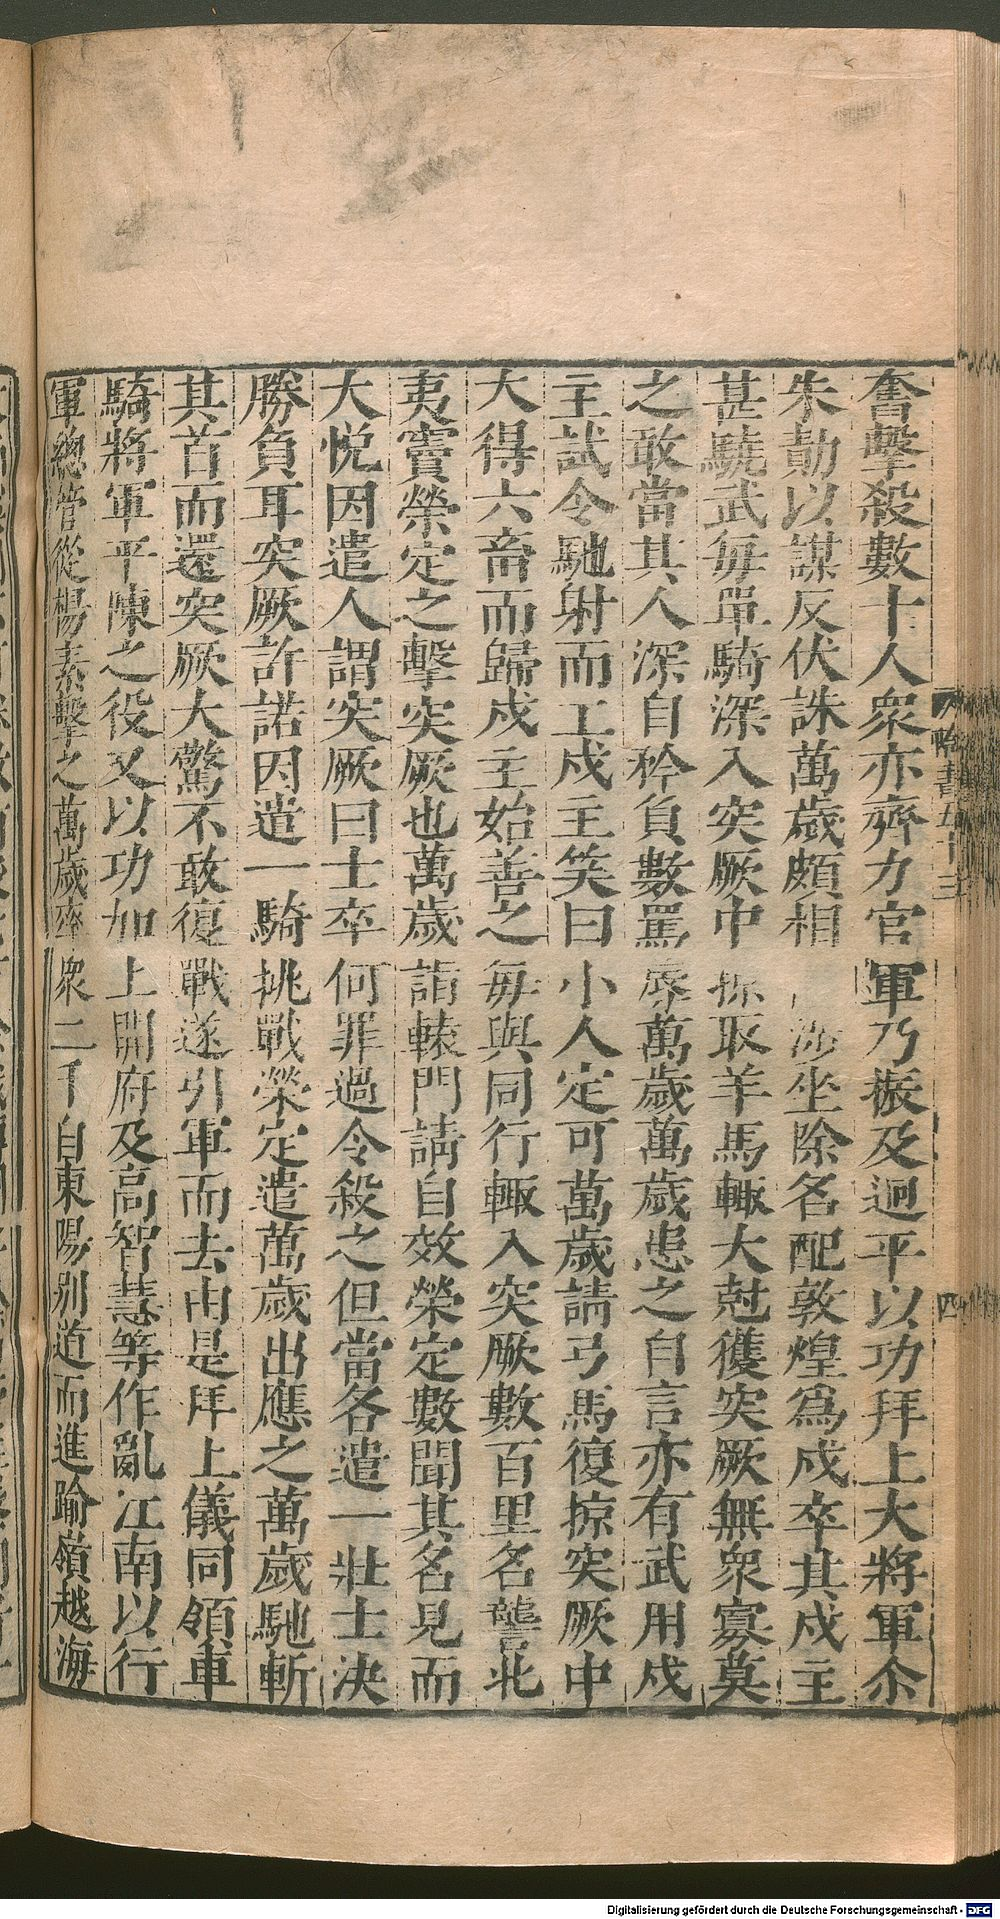 奮擊殺數十人衆亦齊力官軍乃振及逈平以功拜上大將軍尒
朱勣以謀反伏誅萬歲頗相涉坐除名配敦煌爲戍卒其戍主
甚驍武每單騎深入突厥中掠取羊馬輙大尅獲突厥無衆寡莫
之敢當其人深自矜負數罵辱萬歲萬歲患之自言亦有武用戍
主試令馳射而工戍主笑曰小人定可萬歲請弓馬復掠突厥中
大得六畜而歸戍主始善之每與同行輙入突厥數百里名讋北
夷竇榮定之擊突厥也萬歲詣轅門請自效榮定數聞其名見而
大悅因遣人謂突厥曰士卒何罪過令殺之但當各遣一壯士決
勝負耳突厥許諾因遣一騎挑戰榮定遣萬歲出應之萬歲馳斬
其首而還突厥大驚不敢復戰遂引軍而去由是拜上儀同領車
騎將軍平陳之役又以功加上開府及高智慧等作亂江南以行
軍總管從楊素擊之萬歲率衆二千自東陽別道而進踰嶺越海
隋書五十三
四
Digitalisierung gefördert durch die Deutsche Forschungsgemeinschaft - DFG